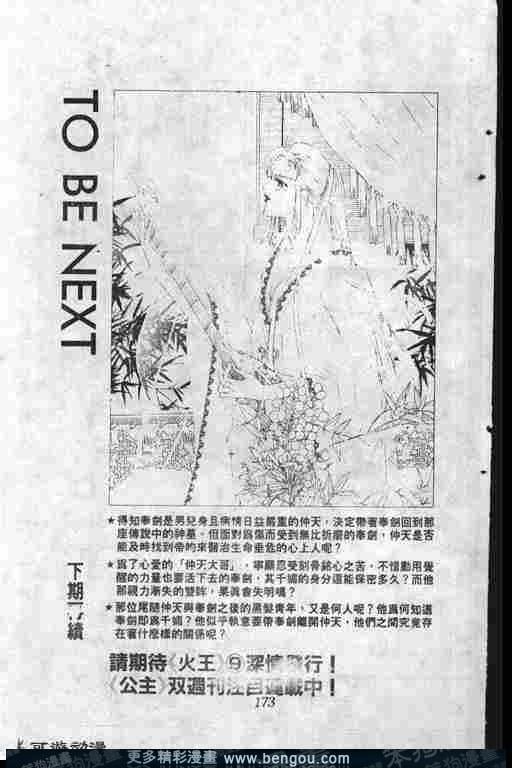 TO BE NEXT
★得知奉劍是男兒身且病情日益嚴重的仲天，決定帶著奉劍回到那
座傳說中的神墓。但面對爲傷而受到無比折磨的奉劍，仲天是否
能及時找到帝的來醫治生命垂危的心上人呢？
★爲了心愛的「仲天大哥」，寧願忍受刻骨銘心之苦、不惜動用覺
醒的力量也要活下去的奉劍，其千嬌的身分還能保密多久？而他
那視力漸失的雙眸，果眞會失明嗎？
★那位尾隨仲天與奉劍之後的黑髮青年，又是何人呢？他爲何知道
奉劍即爲千嬌？他似乎執意要帶奉劍離開仲天，他們之間究竟存
在著什麼樣的關係呢？
下期 續
請期待《火王》⑨深情發行！
《公主》双週刊注目連載中！
173
更多精彩漫畫 www.bengou.com